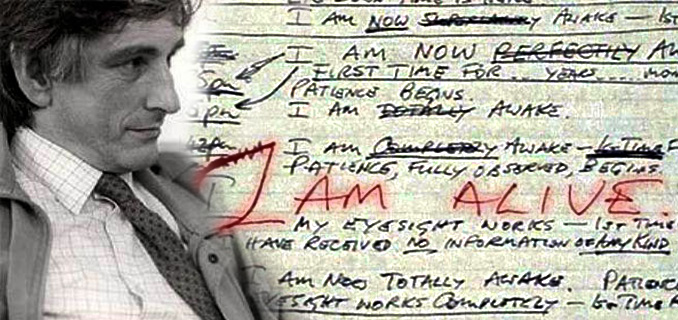 I AM NOW AWAKE — 1ST
I AM NOW PERFECTLY AW
FIRST TIME FOR... YEARS...
5pm PATIENCE BEGINS.
I AM TOTALLY AWAKE.
I AM COMPLETELY AWAKE — 1ST TIME F
PATIENCE, FULLY OBSERVED, BEGINS
I AM ALIVE.
MY EYESIGHT WORKS — 1ST TIME
HAVE RECEIVED NO INFORMATION OF ANY KIND
I AM NOW TOTALLY AWAKE. PATIENC
EYESIGHT WORKS COMPLETELY — 1ST TIME F